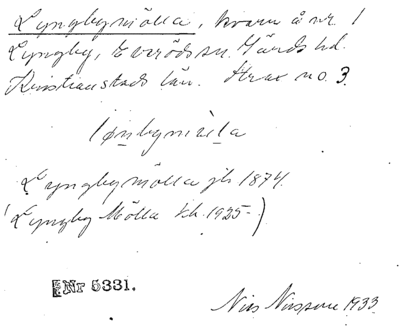 Lyngbymölla, kvarn å nr 1
Lyngby, Everöds sn. Gärds hd.
Kristianstads län. Skrae no. 3.
Lyngbymölla jb 1874.
(Lyngby Mölla kk. 1925-)
Nr 5331.
Nils Nilsson 1933.